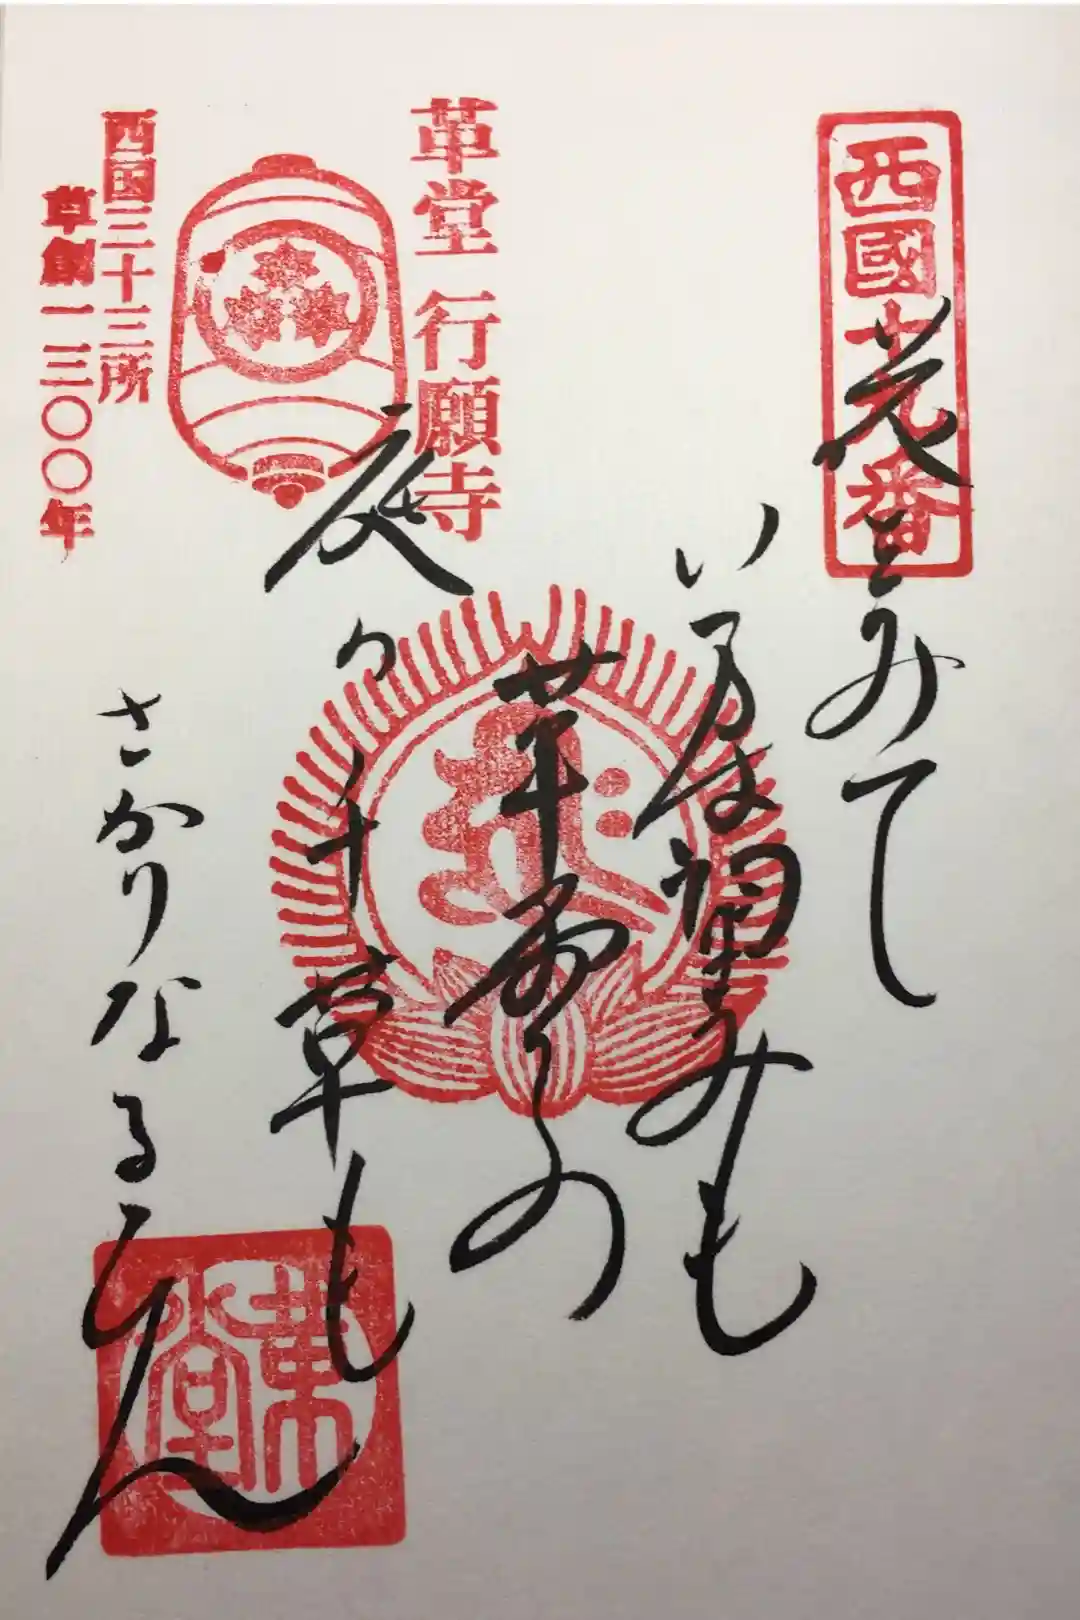 西國十九番
花をみて
いまは望みも
革堂の
庭の千草も
さかりなるらん
革堂 行願寺
西国三十三所
草創一三〇〇年
革堂